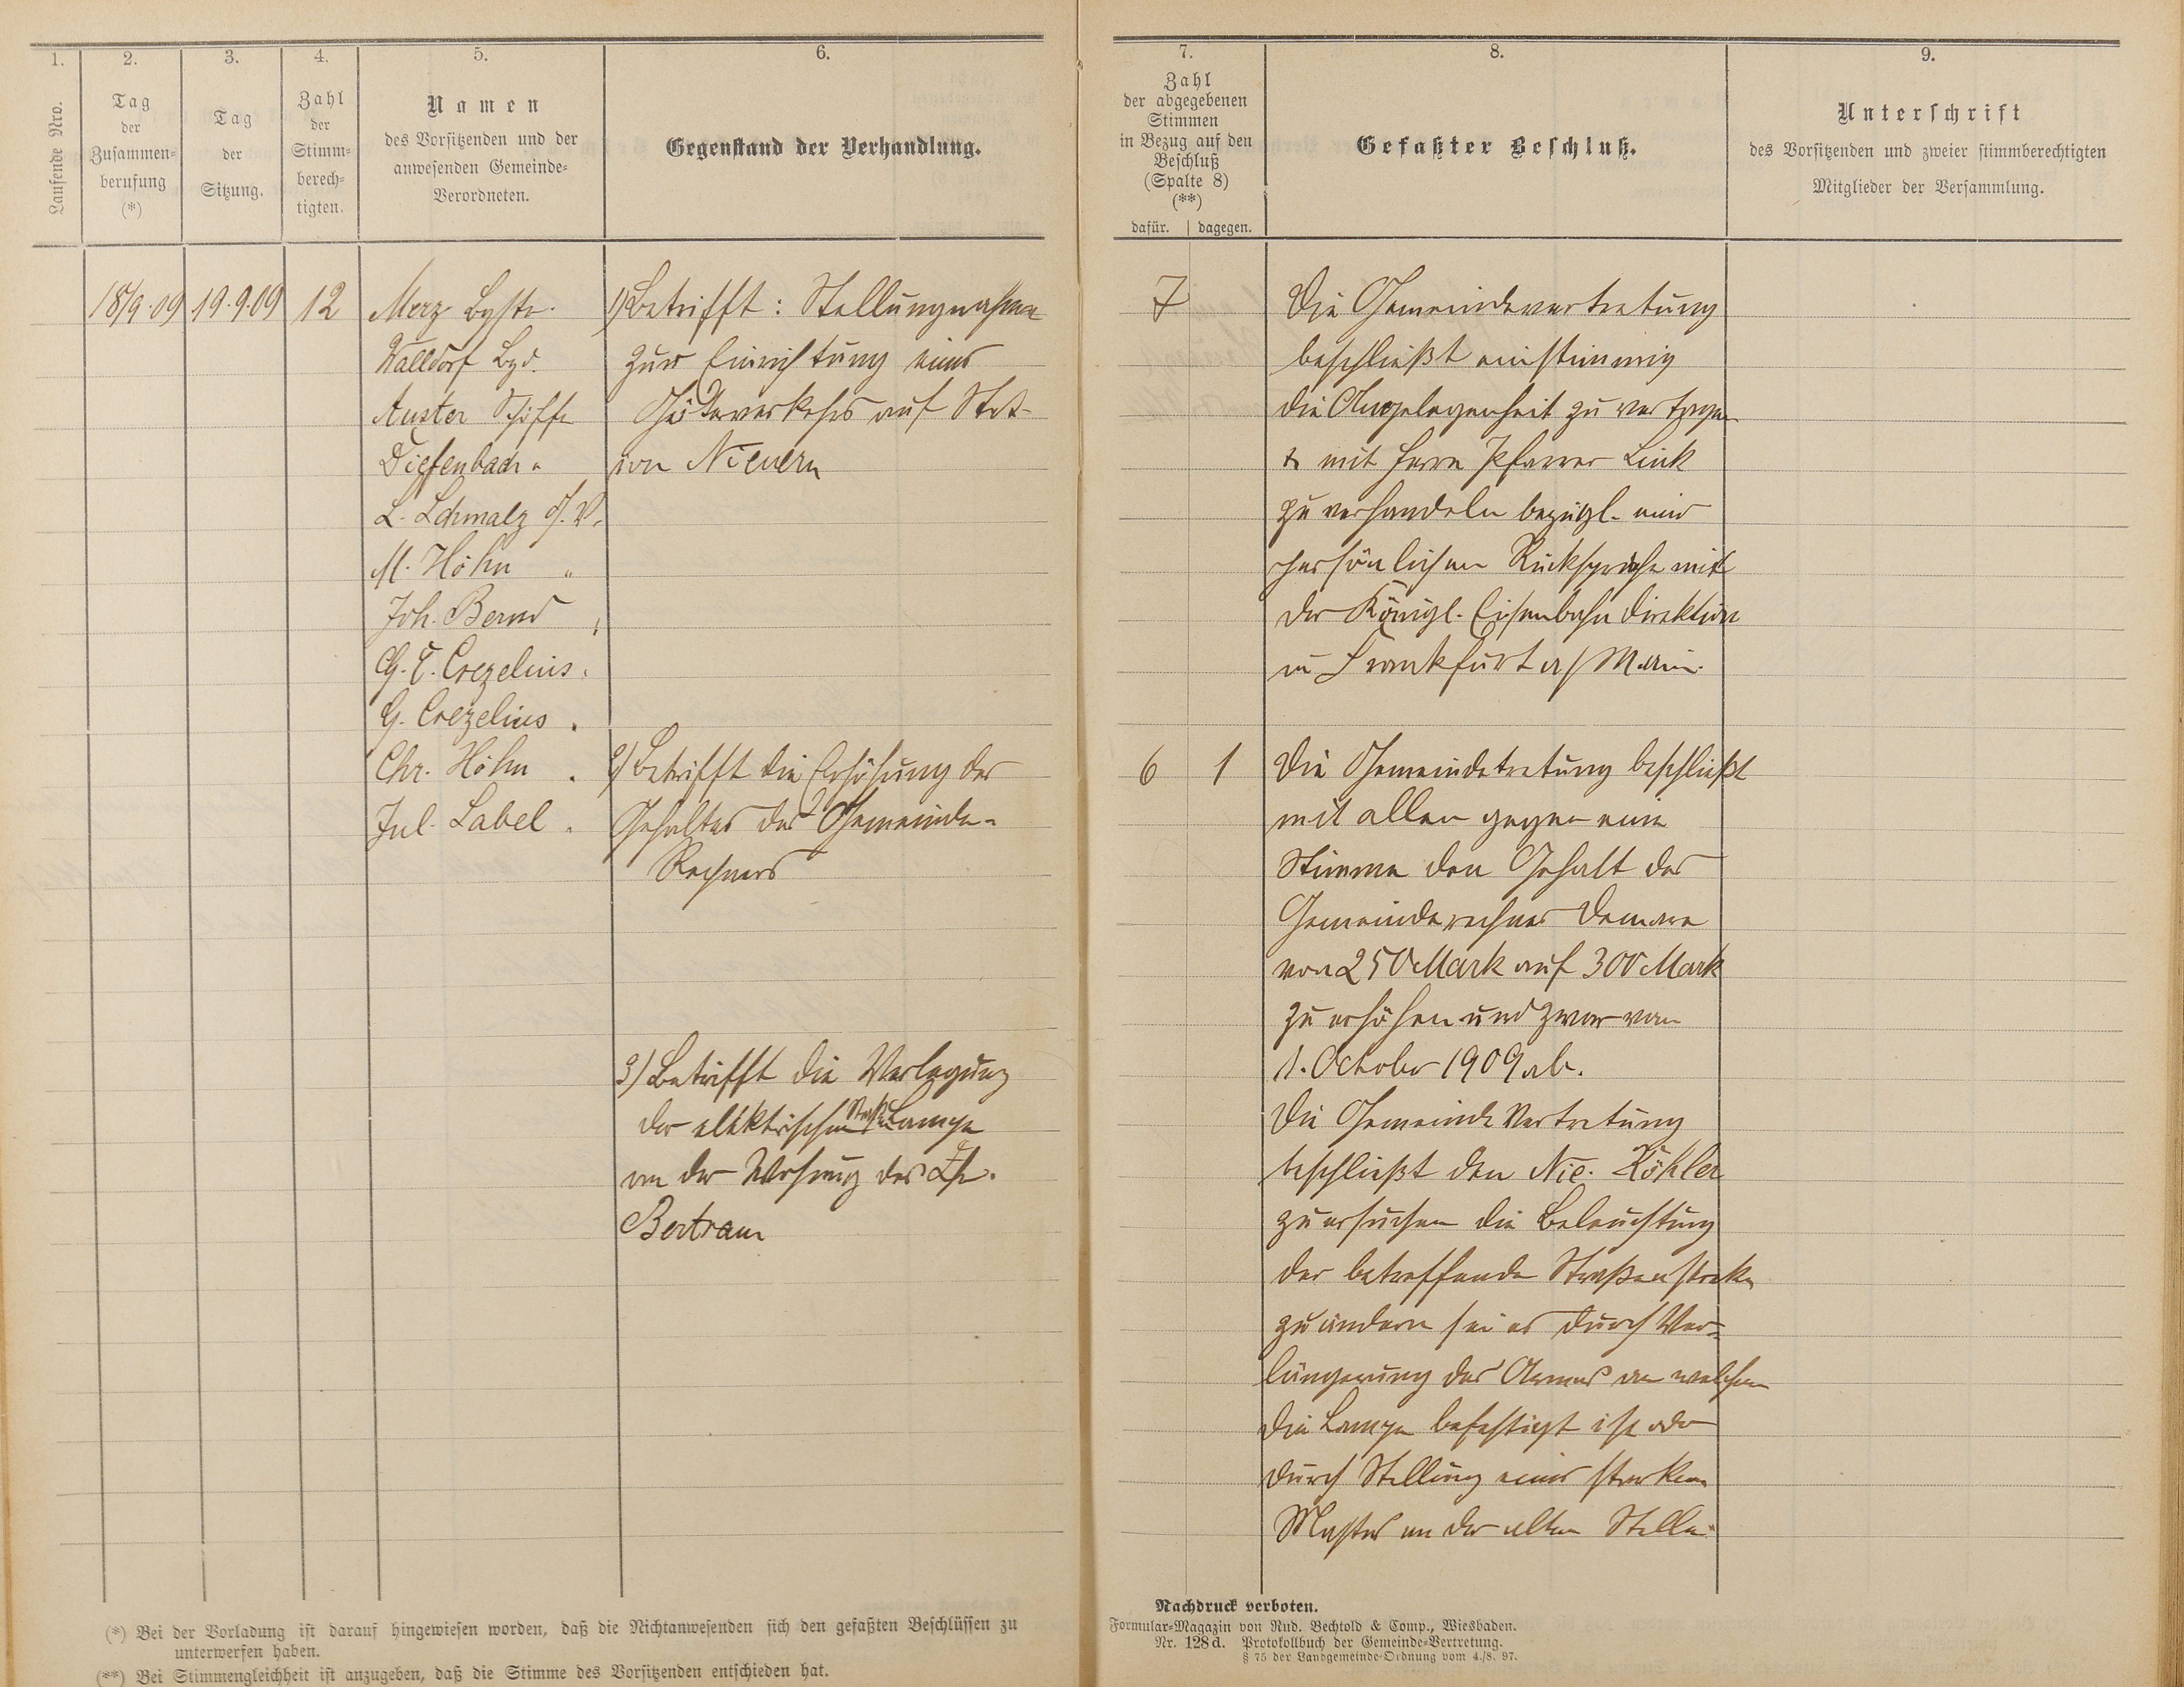 1.
Laufende Nro.
2.
Tag
der
Zusammen-
berufung
(*)
3.
Tag
der
Sitzung.
4.
Zahl
der
Stimm-
berech-
tigten.
5.
Namen
des Vorsitzenden und der
anwesenden Gemeinde-
Verordneten.
6.
Gegenstand der Verhandlung.
18/9.09
19.9.09
12
Merz Bgstr.
Walldorf Bgd.
Auster Schöffe
Diefenbach "
L. Schmalz G.V.
M. Höhn "
Joh. Bernd "
G. C. Crezelius "
G. Crezelius "
Chr. Höhn "
Jul. Label "
1) Betrifft: Stellungnahme
zur Einrichtung eines
Güterverkehrs auf Stat-
ion Nievern
2) Betrifft die Erhöhung des
Gehaltes des Gemeinde-
Rechners
3) Betrifft die Verlegung
der elektrischen Straßen Lampe
an der Wohnung des
Bertram
(*) Bei der Vorladung ist darauf hingewiesen worden, daß die Nichtanwesenden sich den gefaßten Beschlüssen zu
unterwerfen haben.
(**) Bei Stimmengleichheit ist anzugeben, daß die Stimme des Vorsitzenden entschieden hat.
7.
Zahl
der abgegebenen
Stimmen
in Bezug auf den
Beschluß
(Spalte 8)
(**)
dafür. | dagegen.
8.
Gefaßter Beschluß.
9.
Unterschrift
des Vorsitzenden und zweier stimmberechtigten
Mitglieder der Versammlung.
7
Die Gemeindevertretung
beschließt einstimmig
die Angelegenheit zu vertagen
& mit Herrn Pfarrer Link
zu verhandeln bezügl. einer
persönlichen Rücksprache mit
der Königl. Eisenbahn Direktion
in Frankfurt a/Main.
6
1
Die Gemeindetretung beschließt
mit allen gegen eine
Stimme den Gehalt des
Gemeinderechner
von 250 Mark auf 300 Mark
zu erhöhen und zwar vom
1. October 1909 ab.
Die Gemeinde Vertretung
beschließt den Nic. Köhler
zu ersuchen die Beleuchtung
der betreffende Straßenstreke
zu ändern sei es durch Ver-
längerung des Armes an welchem
die Lampe befestigt ist oder
durch Stellung eines starken
Mastes an der alten Stelle.
Nachdruck verboten.
Formular-Magazin von Rud. Bechtold & Comp., Wiesbaden.
Nr. 128 d. Protokollbuch der Gemeinde-Vertretung.
§ 75 der Landgemeinde-Ordnung vom 4./8. 97.